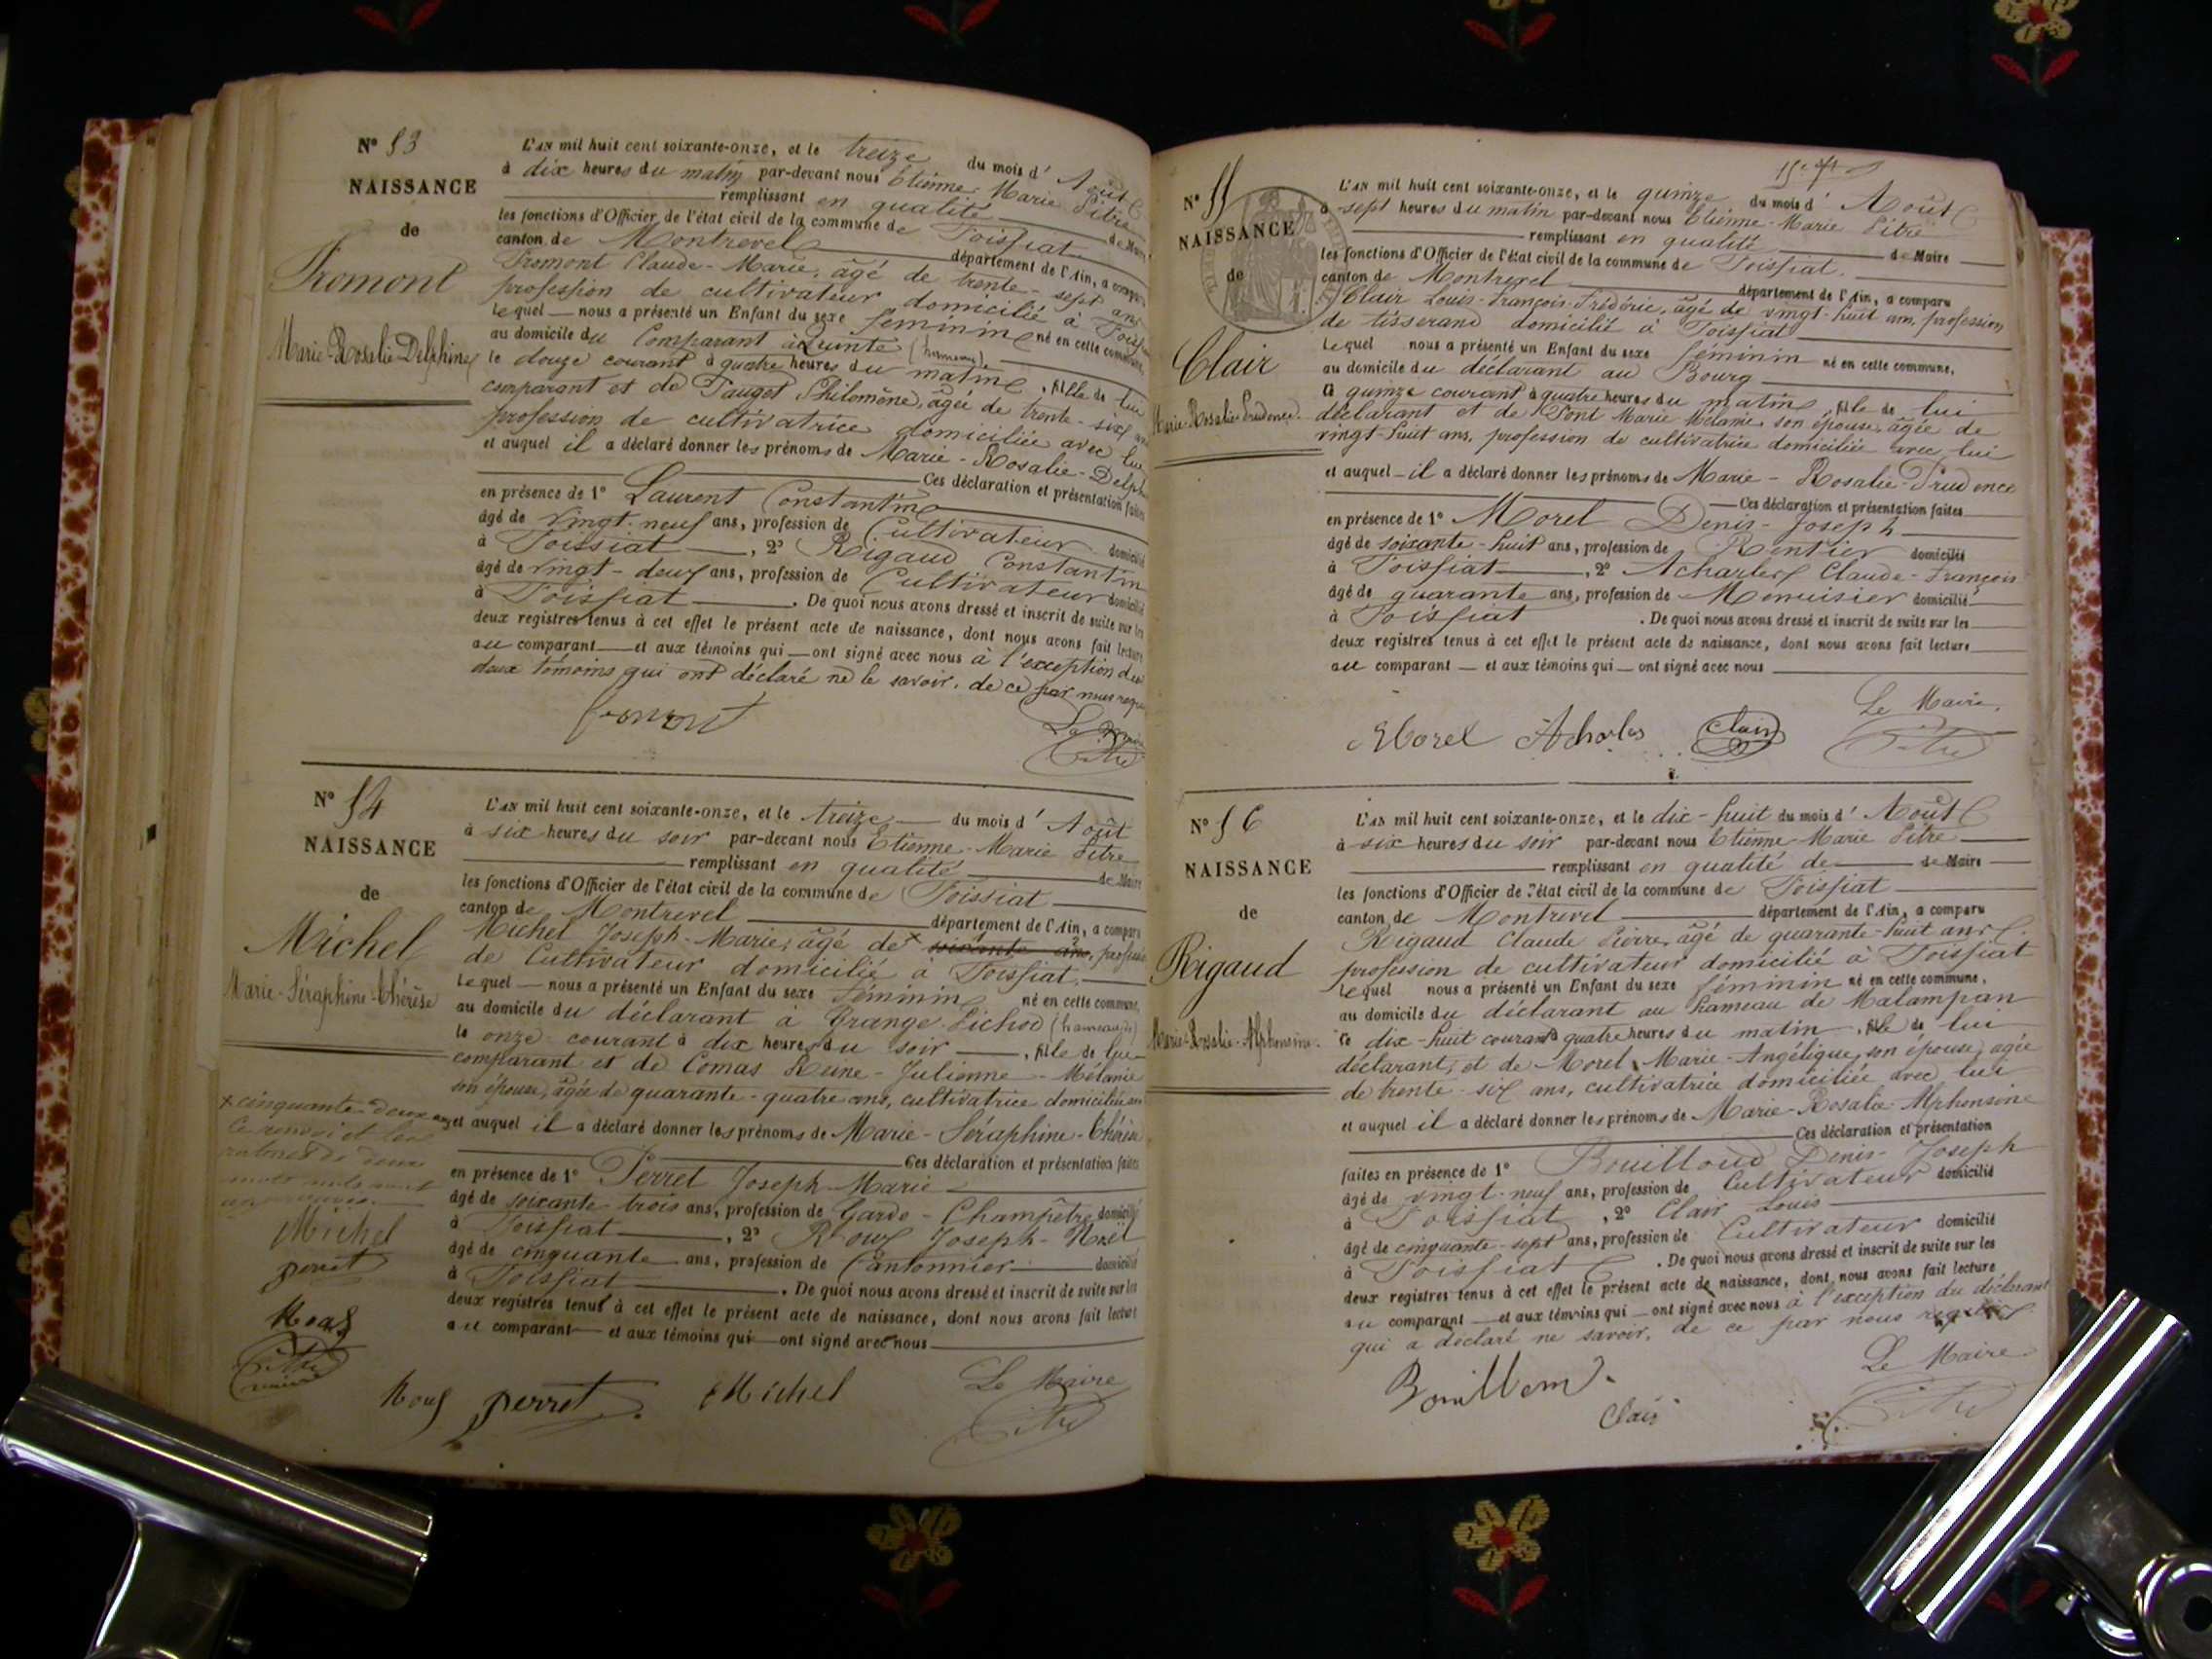 N° 53
NAISSANCE
de
Fromont
Marie-Rosalie Delphine
L'AN mil huit cent soixante-onze, et le treize du mois d' Août
à dix heures du matin par-devant nous Etienne Marie Pitre
remplissant en qualité de Maire
les fonctions d'Officier de l'état civil de la commune de Foissiat
canton de Montrevel département de l'Ain, a comparu
Fromont Claude-Marie, âgé de trente-sept ans
profession de cultivateur domicilié à
Lequel nous a présenté un Enfant du sexe féminin né en cette commune,
au domicile du Comparant à Quinte (hameau),
le douze courant à quatre heures du matin, fille de lui
comparant et de Pauget Philomène, âgée de trente-six
profession de cultivatrice domiciliée avec lui
et auquel il a déclaré donner les prénoms de Marie-Rosalie-Delph
Ces déclaration et présentation faites
en présence de 1° Laurent Constantin
âgé de vingt-neuf ans, profession de Cultivateur domicilié
à Foissiat, 2° Rigaud Constantin
âgé de vingt-deux ans, profession de Cultivateur domicilié
à Foissiat. De quoi nous avons dressé et inscrit de suite sur les
deux registres tenus à cet effet le présent acte de naissance, dont nous avons fait lecture
au comparant et aux témoins qui ont signé avec nous à l'exception des
deux témoins qui ont déclaré ne le savoir, de ce par nous requis
fromont
Le Maire
Pitre
N° 54
NAISSANCE
de
Michel
Marie-Séraphine-Thérèse
L'AN mil huit cent soixante-onze, et le treize du mois d' Août
à six heures du soir par-devant nous Etienne-Marie Pitre
remplissant en qualité de Maire
les fonctions d'Officier de l'état civil de la commune de Foissiat
canton de Montrevel département de l'Ain, a comparu
Michel Joseph-Marie, âgé de x soixante ans, profession
de Cultivateur domicilié à Foissiat.
Lequel nous a présenté un Enfant du sexe féminin né en cette commune,
au domicile du déclarant à Grange-Pichod (hameau)
le onze courant à dix heures du soir, fille de lui
comparant et de Comas Reine-Julienne-Mélanie
son épouse, âgée de quarante-quatre ans, cultivatrice domiciliée
et auquel il a déclaré donner les prénoms de Marie-Séraphine-Thérèse
Ces déclaration et présentation faites
en présence de 1° Perret Joseph-Marie
âgé de soixante trois ans, profession de Garde-Champêtre domicilié
à Foissiat, 2° Roux Joseph-Noël
âgé de cinquante ans, profession de Cantonnier domicilié
à Foissiat. De quoi nous avons dressé et inscrit de suite sur les
deux registres tenus à cet effet le présent acte de naissance, dont nous avons fait lecture
au comparant et aux témoins qui ont signé avec nous
x cinquante-deux ans
Ce renvoi et les
ratures de deux
mots nuls sont
approuvés.
Michel
perret
Roux
Pitre
maire
Roux perret Michel
Le Maire
Pitre
15e
N° 55
NAISSANCE
de
Clair
Marie-Rosalie-Prudence
L'AN mil huit cent soixante-onze, et le quinze du mois d' Août
à sept heures du matin par-devant nous Etienne-Marie Pitre
remplissant en qualité de Maire
les fonctions d'Officier de l'état civil de la commune de Foissiat.
canton de Montrevel département de l'Ain, a comparu
Clair Louis-François-Frédéric, âgé de vingt-huit ans, profession
de tisserand domicilié à Foissiat
Lequel nous a présenté un Enfant du sexe féminin né en cette commune,
au domicile du déclarant au Bourg
le quinze courant à quatre heures du matin, fille de lui
déclarant et de Pont Marie Mélanie, son épouse, âgée de
vingt-huit ans, profession de cultivatrice domiciliée avec lui
et auquel il a déclaré donner les prénoms de Marie-Rosalie-Prudence
Ces déclaration et présentation faites
en présence de 1° Morel Denis-Joseph
âgé de soixante-huit ans, profession de Rentier domicilié
à Foissiat, 2° Acharles Claude-François
âgé de quarante ans, profession de Menuisier domicilié
à Foissiat. De quoi nous avons dressé et inscrit de suite sur les
deux registres tenus à cet effet le présent acte de naissance, dont nous avons fait lecture
au comparant et aux témoins qui ont signé avec nous
Le Maire,
Morel Acharles Clair Pitre
N° 56
NAISSANCE
de
Rigaud
Marie-Rosalie-Alphonsine
L'AN mil huit cent soixante-onze, et le dix-huit du mois d' Août
à six heures du soir par-devant nous Etienne-Marie Pitre
remplissant en qualité de de Maire
les fonctions d'Officier de l'état civil de la commune de Foissiat
canton de Montrevel département de l'Ain, a comparu
Rigaud Claude Pierre, âgé de quarante-huit ans
profession de cultivateur domicilié à Foissiat
Lequel nous a présenté un Enfant du sexe féminin né en cette commune,
au domicile du déclarant au hameau de Malampan
le dix-huit courant à quatre heures du matin, fille de lui
déclarant, et de Morel Marie-Angélique, son épouse, agée
de trente-six ans, cultivatrice domiciliée avec lui
et auquel il a déclaré donner les prénoms de Marie-Rosalie-Alphonsine
Ces déclaration et présentation
faites en présence de 1° Bouilloud Denis-Joseph
âgé de vingt-neuf ans, profession de Cultivateur domicilié
à Foissiat, 2° Clair Louis
âgé de cinquante-sept ans, profession de Cultivateur domicilié
à Foissiat. De quoi nous avons dressé et inscrit de suite sur les
deux registres tenus à cet effet le présent acte de naissance, dont nous avons fait lecture
au comparant et aux témoins qui ont signé avec nous à l'exception du déclarant
qui a déclaré ne savoir, de ce par nous requis
Le Maire
Bouilloud
Clair
Pitre